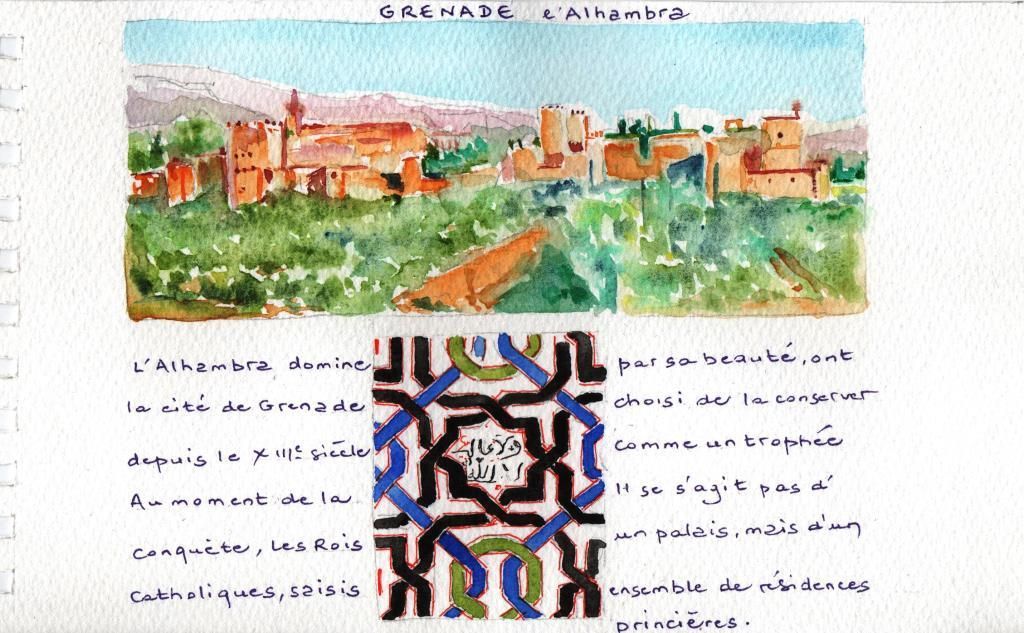 GRENADE l'Alhambra
L'Alhambra domine
la cité de Grenade
depuis le XIIIe siècle
Au moment de la
conquète, les Rois
Catholiques, saisis
par sa beauté, ont
choisi de la conserver
comme un trophée
Il se s'agit pas d'
un palais, mais d'un
ensemble de résidences
princières.